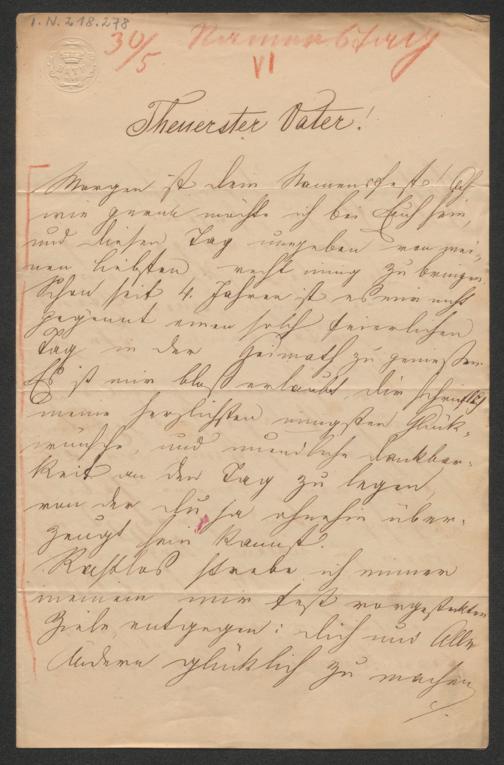 I.N. 218.278
30/5
VI
BATH
Theuerster Vater!
Morgen ist Dein Namensfest! Ach
wie gerne möchte ich bei Euch sein,
und diesen Tag umgeben von mei-
nen Liebsten recht zu bringen.
Schon seit 4 Jahren ist es mir nicht
gegönnt einen solch feierlichen
Tag in der Heimath zu geniessen.
Es ist mir blos erlaubt, Dir schriftlich
meine herzlichsten innigsten Glück-
wünsche, und unendliche Dankbar-
keit an den Tag zu legen,
von der Du ja ohnehin über-
zeugt sein kannst.
Rastlos strebe ich immer
meinem mir fest vorgesteckten
Ziele entgegen: Dich und Alle
Andern glücklich zu machen